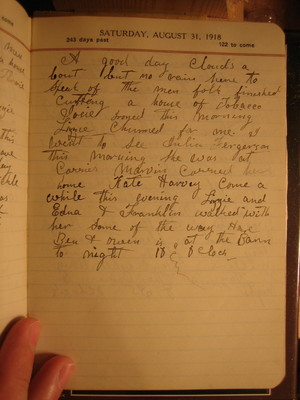 SATURDAY, AUGUST 31, 1918
243 days past
122 to come
A good day Clouds a
bout but no rain here to
Speak of the men folks finished
Cutting a house of tobacco
I ironed this morning
Lonie Churned for me I
went to see Julia Fergerson
this morning she was at
Cornies Marvin Carried her
home Kate Harvey Come a
while this evening Lonie and
Edna & Franklin walked with
her some of the way Har
Ben & Owen is at the Barn
to night 10 O Clock